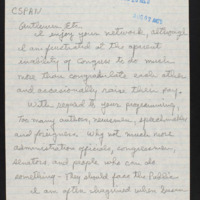 CSPAN
Gentlemen Etc.
I enjoy your network, although
I am frustrated at the apparent
inability of Congress to do much
more than congratulate each other
and occasionally raise their pay.
With regard to your programming,
Too many authors, newsmen, speechmakers
and foreigners. Why not much more
administration officials, congressmen,
senators and people who can do
something - They should face the Public.
I am often chagrined when